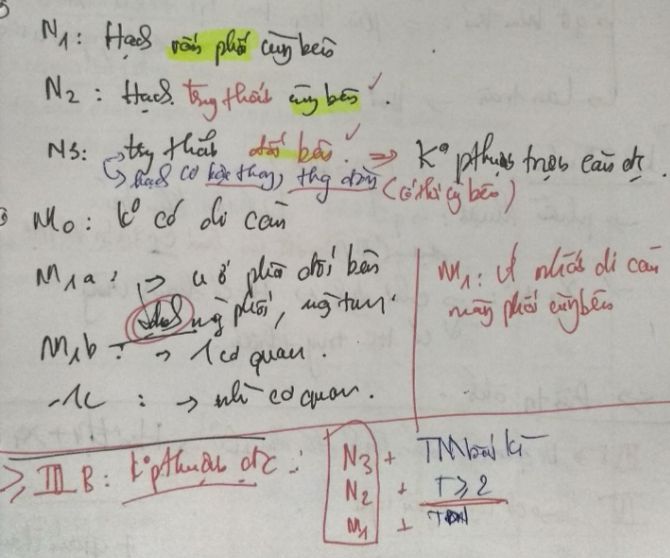 N1: Hạch rốn phổi cùng bên
N2: Hạch trung thất cùng bên ✓.
N3: trung thất đối bên ✓. ⇒ K° phthuật trọn căn đc.
↳ hạch cơ bậc thang, thg đòn (có thể cg bên)
M0: k° có di căn
M1a: → u ở phổi đối bên
dịch mg phổi, mg tim
M1b: → 1 cơ quan.
-1c: → nhiều cơ quan.
M1: U nhất di căn
màng phổi cùng bên
≥ III B: k° pthuật đc: N3 + TM bất kì
N2 + T ≥ 2
M1 +